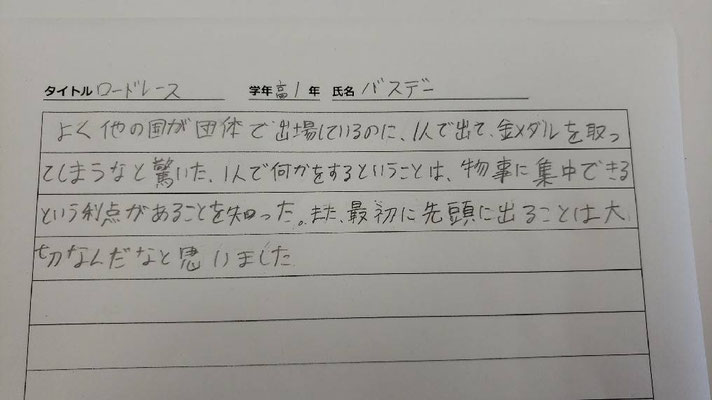 タイトル ロードレース 学年 高1年 氏名 バスデー
よく他の国が団体で出場しているのに、1人で出て、金メダルを取っ
てしまうなと驚いた、1人で何かをするということは、物事に集中できる
という利点があることを知った。また、最初に先頭に出ることは大
切なんだなと思いました